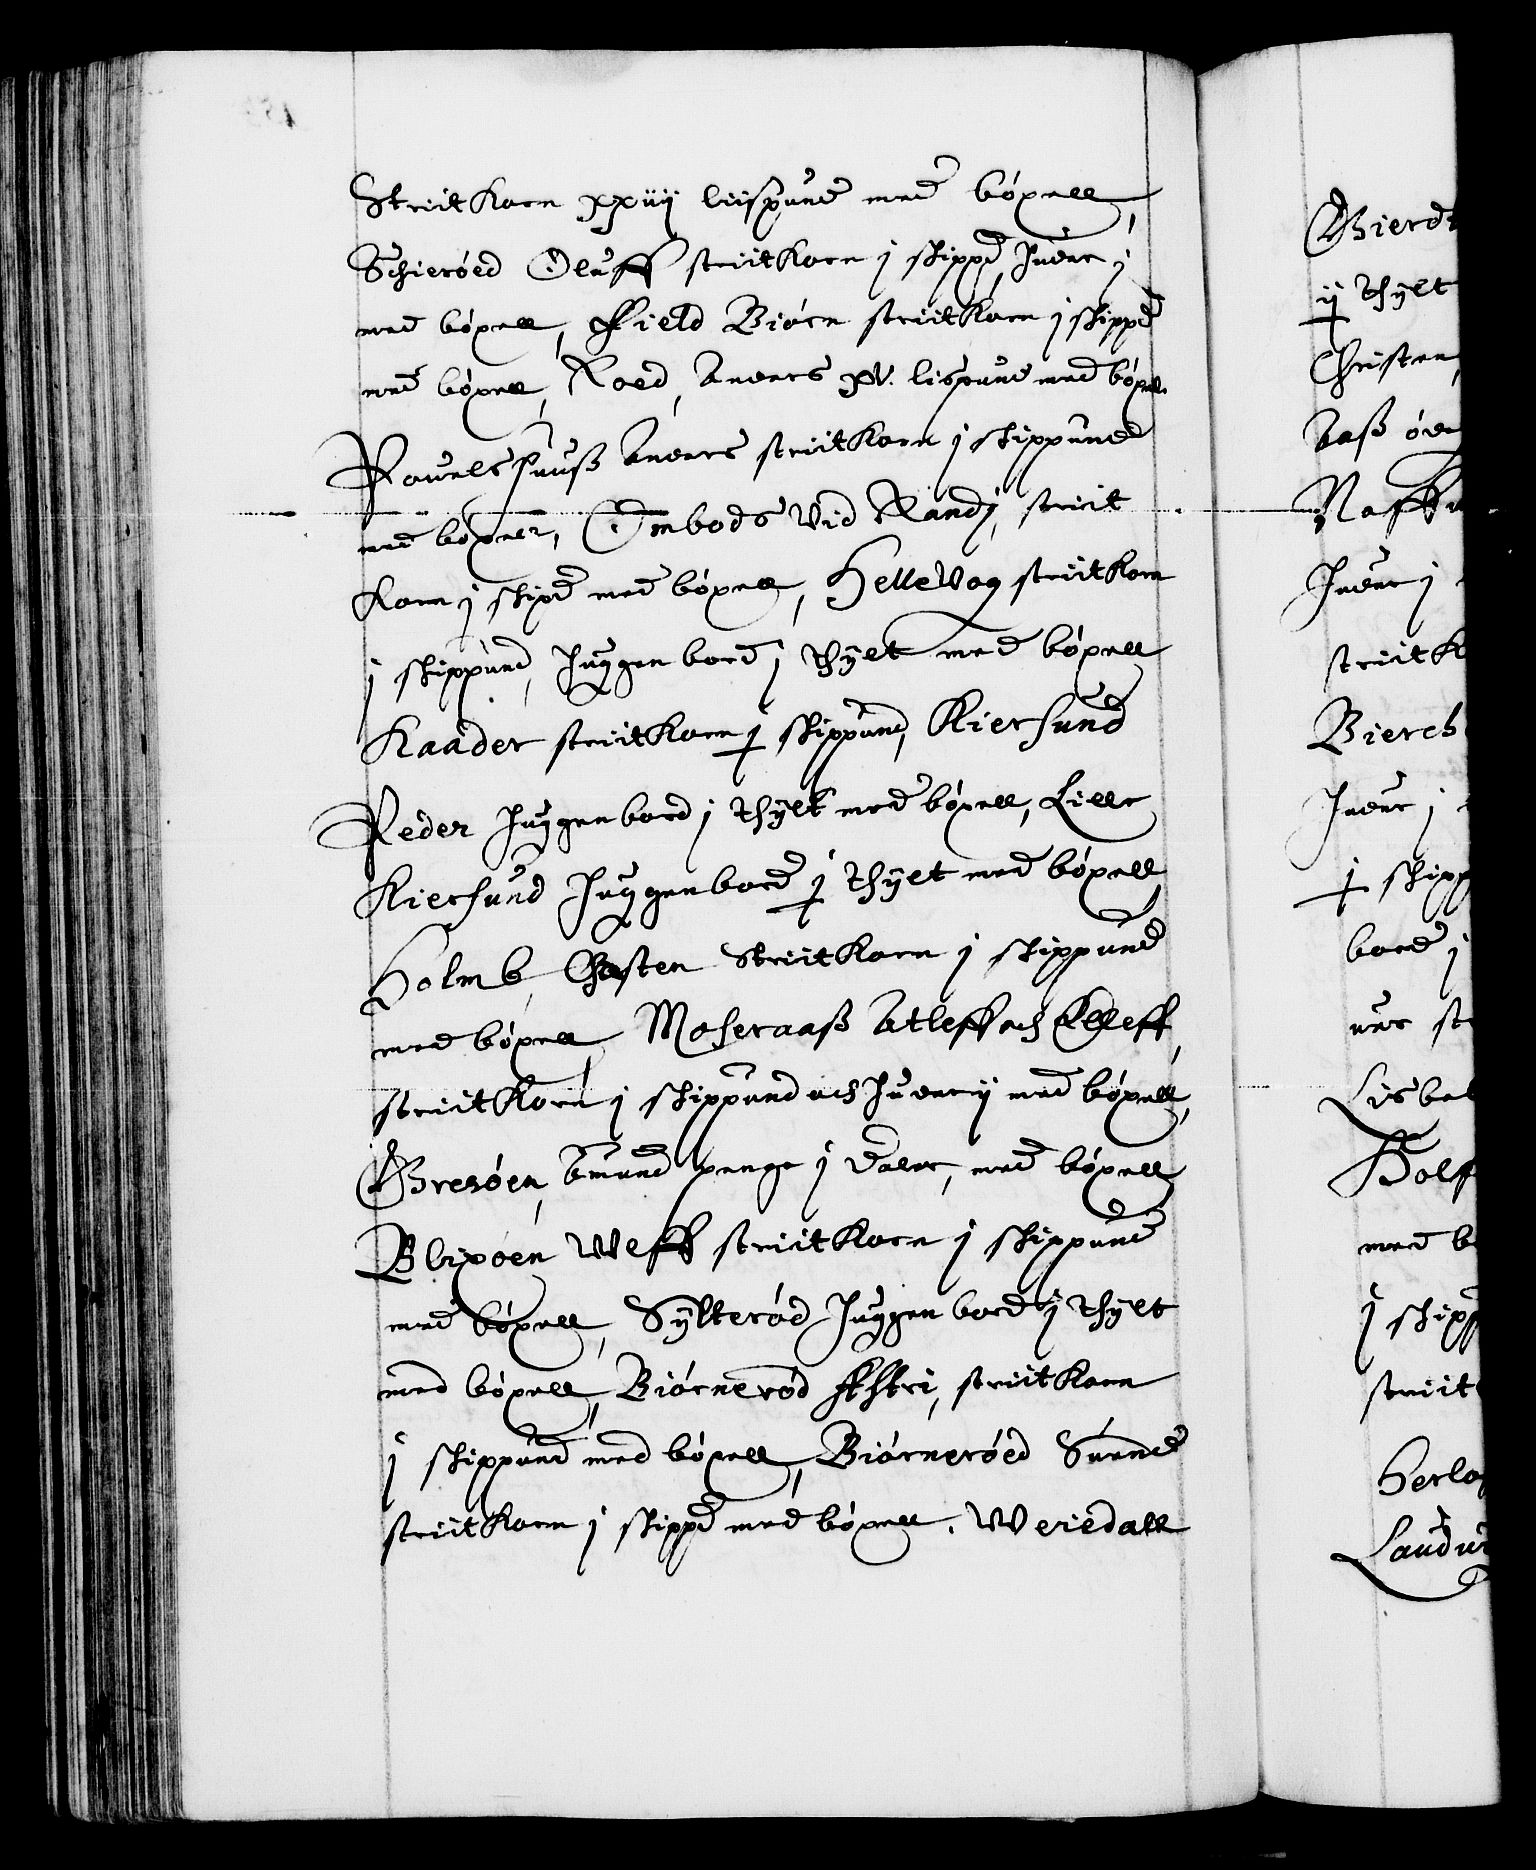 Striitkorn xxiiij liispund med bóxell,
Schieróed Oluff striitkorn j skippd, huder j
med bóxell, Field Biórn striitkorn j skippd
med bóxell, Roed, Anders xv. lispund med bóxell
Pouelshuuß Anders striitkorn j skippund
med bóxell, Ombods Vid Randj, striit
korn j skipd med bóxell, Hellevog striitkorn
j skippund, Huggenbord j thylt med bóxell
Kaader striitkorn j skippund, Kiersund
Peder Huggenbord j thylt med bóxell, Lille
Kiersund Huggenbord j thylt med bóxell
Holmb, Chasten Striitkorn j skippund
med bóxell, Moseraaß Atleff och Elleff,
striitkorn j skippund och huder ij med bóxell,
Gresóen, Amund penge j daler, med bóxell
Blixóen Weff striitkorn j skippund
med bóxell, Sÿlteród Huggenbord j thylt
med bóxell, Biórneród striitkorn
j skippund med bóxell, Biórneróed Suend
striitkorn j skippd med bóxell. Weriedall
Gierd
ij thylt
Christen,
Aaß óde
Naff
Huder j
striitk
Bierch
Huder j
j skipp
bord j
Lisbe
Holf
med b
j skipp
striit
Herlo
Laudu